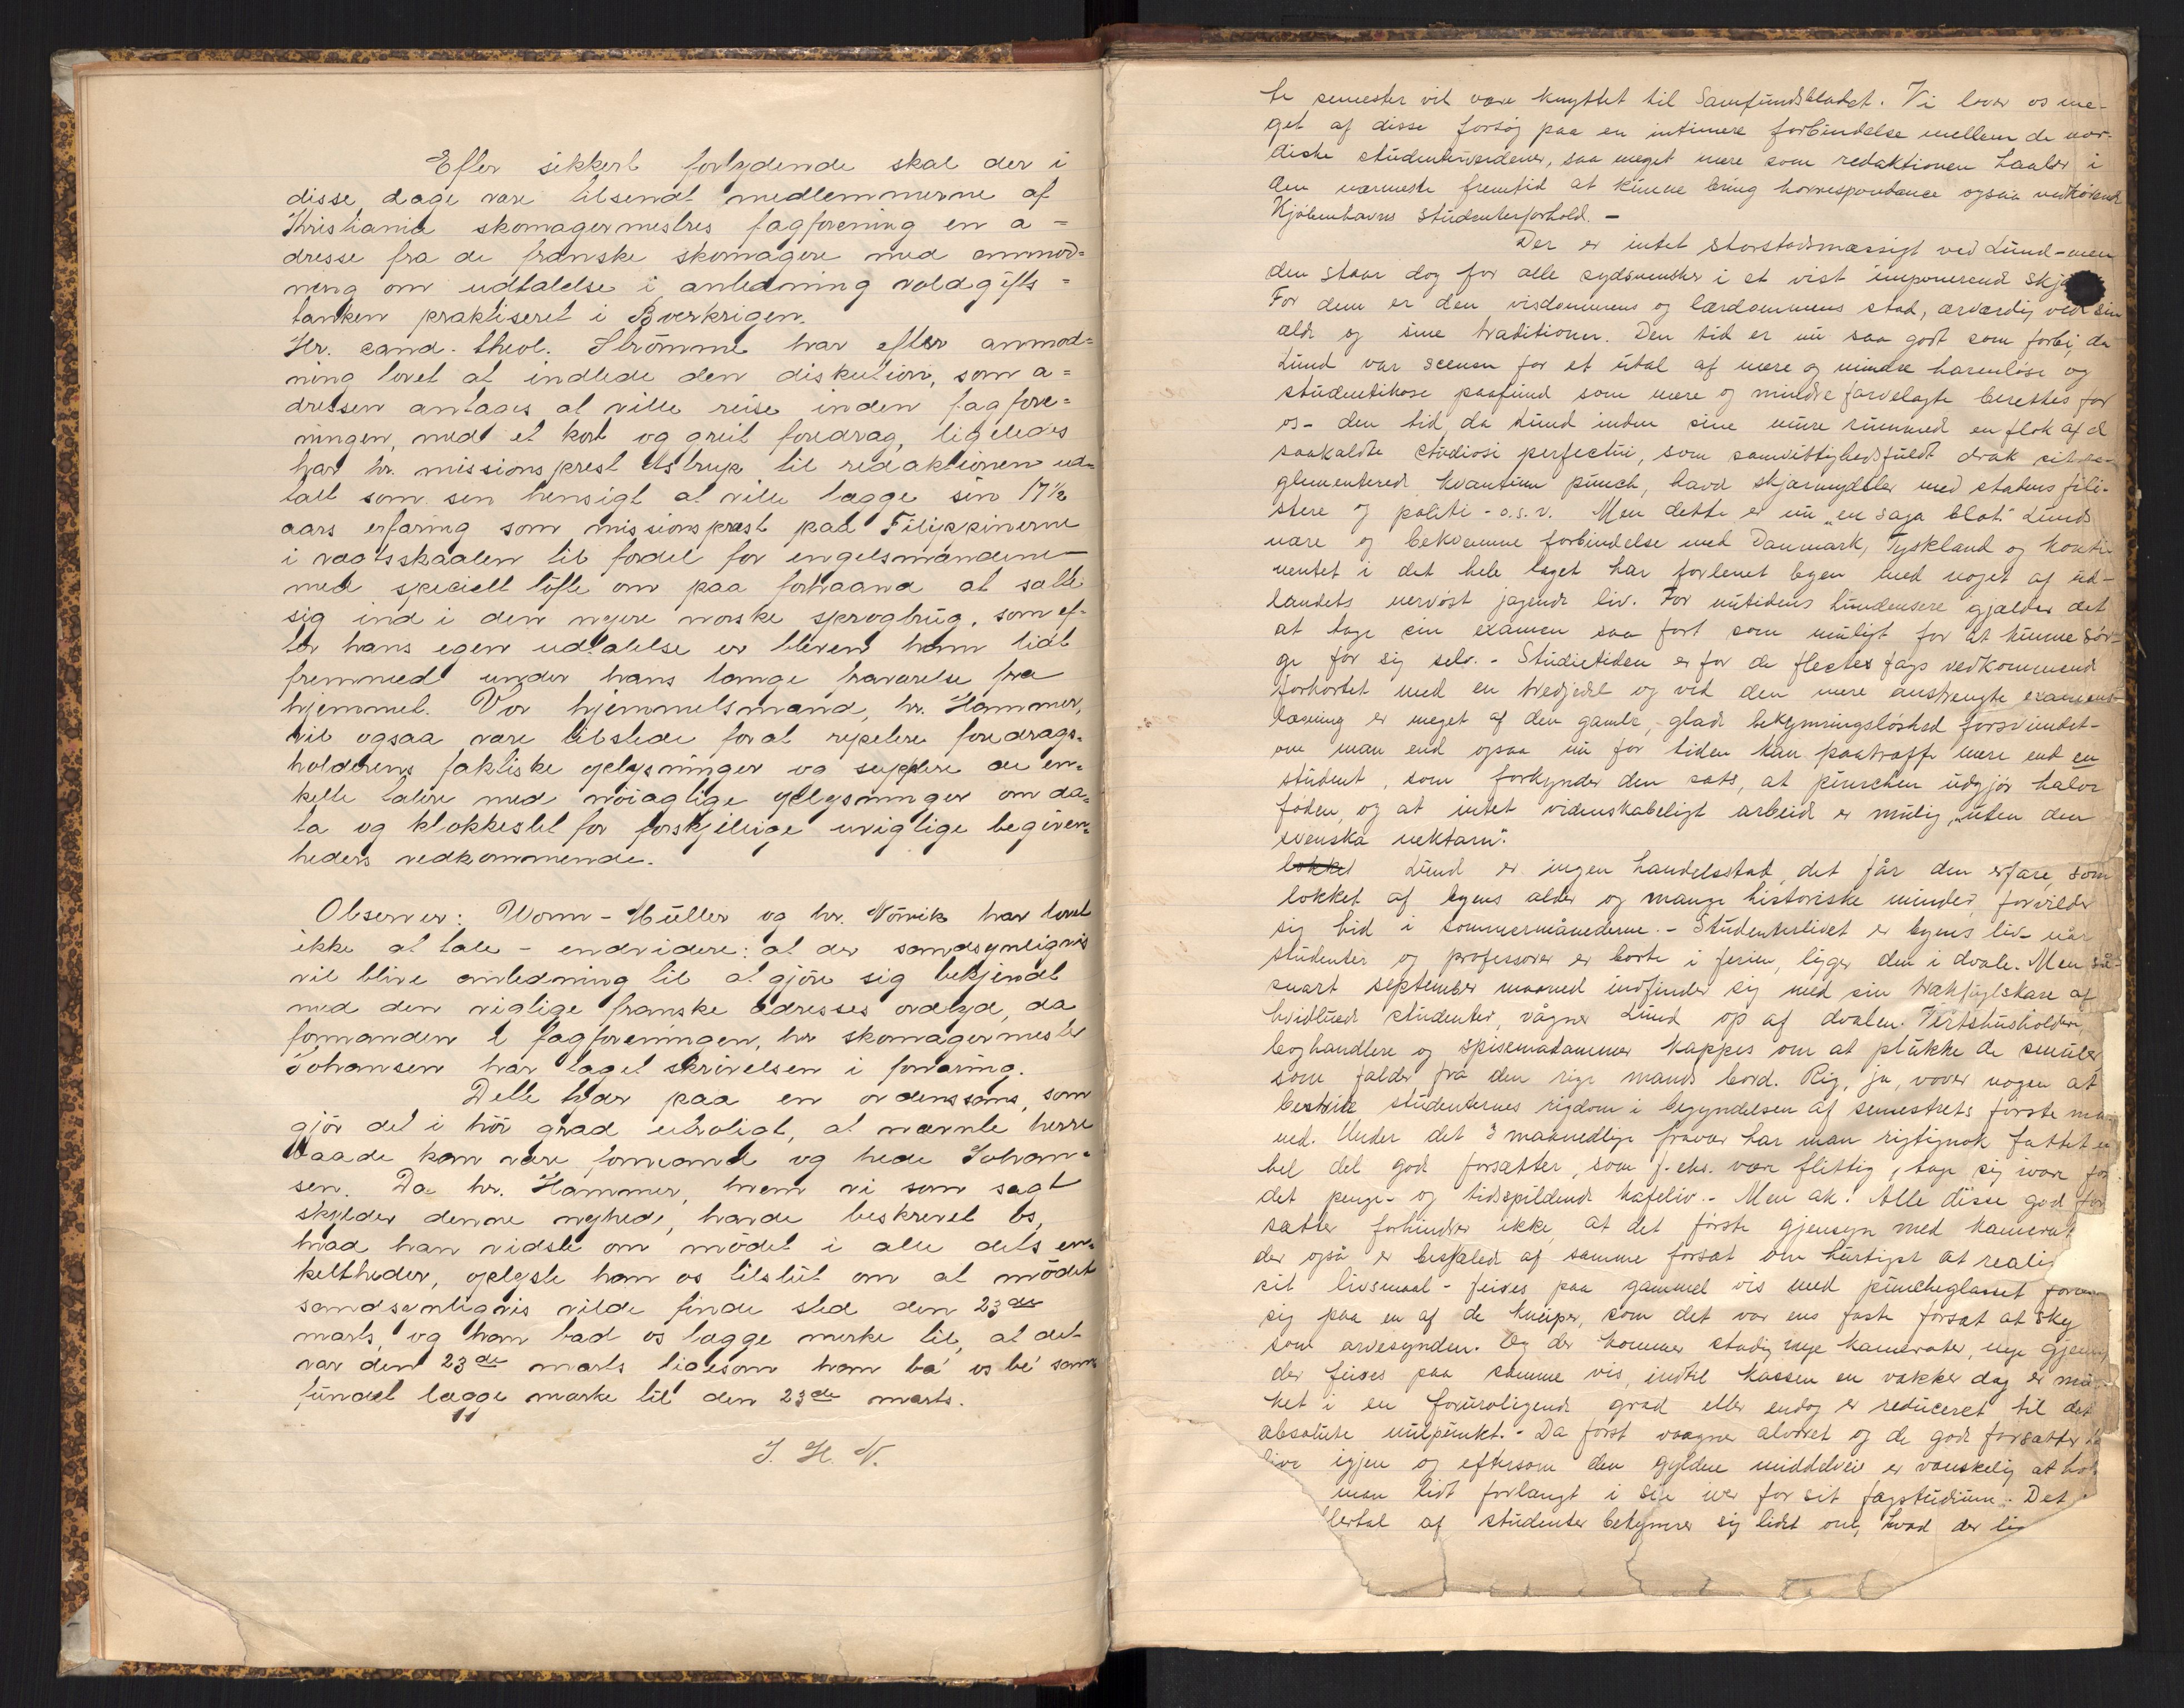 Efter sikkert forlydende skal der i
disse dage være tilsendt medlemmerne af
Kristiania skomagermestres fagforening en a=
dresse fra de franske skomagere med anmod=
ning om udtalelse i anledning voldgifts=
tanken praktiseret i Boerkrigen.
Hr. cand. theol. Strömme har efter anmod=
ning lovet at indlede den diskution, som a=
dressen antages at ville reise inden fagfore=
ningen, med et kort og greit foredrag, ligeledes
har hr. missionsprest Astrup til redaktionen ud=
talt som sen hensigt at ville lægge sin 17½
aars erfaring som missionsprest paa Filippinerne
i vægtskaalen til fordel for engelsmændene -
med specielt löfte om paa forhaand at sætte
sig ind i den nyere norske sprogbrug, som ef-
ter hans egen udtalelse er bleven ham lidt
fremmed under hans lange fraværelse fra
hjemmet. Vor hjemmelsmand, hr. Hammer,
vil ogsaa være tilstede for at repetere foredrags=
holderens faktiske oplysninger og supplere de en=
kelte talere med nöiagtige oplysninger om da=
ta og klokkeslet for forskjellige uvigtige begiven=
heders vedkommende.
Observer: Worm-Müller og hr. Nörvik har lovet
ikke at tale - endvidere: at der sandsynligvis
vil blive anledning til at gjöre sig bekjendt
med den vigtige franske adresses ordlyd, da
formanden i fagforeningen, hr skomagermester
Johansen har taget skrivelsen i forvaring.
Dette tyder paa en ordenssans, som
gjör det i höi grad utroligt, at nævnte herre
baade kan være formand og hede Johan=
sen. Da hr. Hammer, hvem vi som sagt
skylder denne nyhed, havde beskrevet os,
hvad han vidste om mödet i alle dets en=
keltheder, oplyste han os tilslut om at mödet
sandsynligvis vilde finde sted den 23de
marts, og han bad os lægge merke til, at det
var den 23de marts ligesom han ba' os be' sam
fundet lægge mærke til den 23de marts.
J. H. N.
te semester vil være knyttet til Samfundsbladet. Vi lover os me-
get af disse forsøg paa en intimere forbindelse mellem de nor-
diske studenterverdener, saa meget mere som redaktionen haaber i
den nærmeste fremtid at kunne bring korrespondance ogsaa vedkörende
Kjöbenhavns studenterforhold. -
Der er intet storstadsmæssigt ved Lund - men
den staar dog for alle sydsvensker i et vist imponerend skjæ
For dem er den visdommens og lærdommens stad, ærværdig ved sin
ælde og sine traditioner. Den tid er nu saa godt som forbi, da
Lund var scenen for et utal af mere og mindre harmløse og
studentikose paafund som mere og mindre farvelagte berettes for
os - den tid, da Lund inden sine mure rummed en flok af d
saakaldte studiosi perfectiu, som samvittighedsfuldt drak sit re-
glementerede kvantum punch, havd skjærmydsler med stadens fili-
stere og politi - o.s.v. Men dette er nu "en saga blot." Lunds
nære og bekvemme forbindelse med Danmark, Tyskland og konti-
nentet i det hele taget har forlenet byen med noget af ud-
landets nervøst jagende liv. For nutidens lundensere gjælder det
at tage sin examen saa fort som muligt for at kunne sör-
ge for sig selv. - Studietiden er for de flestes fags vedkommend
forkortet med en tredjedel og ved den mere anstrengte examens-
læsning er meget af den gamle, glade bekymringsløshed forsvundet -
om man end ogsaa nu for tiden kan paatræffe mere end en
student, som forkynder den sats, at punchen udgjör halve
föden, og at intet videnskabeligt arbeid er mulig "uten den
svenska nektarn."
lokket Lund er ingen handelsstad, det får den erfare, som
lokket af byens alder og mange historiske minder, forvilder
sig hid i sommermånederne. - Studenterlivet er byens liv - når
studenter og professorer er borte i ferien, ligger den i dvale. Men så
snart september maaned indfinder sig med sin trækfuglskare af
hvidluede studenter, vågner Lund op af dvalen. Vertshusholdere,
boghandlere og spisemadammer kappes om at plukke de smuler
som falder fra den rige mands bord. Rig, ja, vover nogen at
bestride studenternes rigdom i begyndelsen af semestrets første må
ned. Under det 3 maanedlige fravær har man rigtignok fattet en
hel del gode forsætter, som f. eks. være flittig, tage sig ivare for
det penge- og tidspildende kafeliv. - Men ak! Alle disse gode for
sætter forhindrer ikke, at det første gjensyn med kamerat
der også er besjælet af samme forsæt om hurtigst at realis
sit livsmaal - feires paa gammel vis med puncheglasset foran
sig paa en af de kneiper, som det var ens faste forsæt at sky
som arvesynden. Og der kommer stadig nye kamerater, nye gjensyn,
der feires paa samme vis, indtil kassen en vakker dag er
ket i en foruroligende grad eller endog er reduceret til det
absolute nulpunkt. - Da först vaagner alvoret og de gode forsætter
live igjen og eftersom den gyldne middelvei er vanskelig at hol
man lidt forlangt i sin iver for sit fagstudium. - Det
lertal af studenter bekymrer sig lidet om, hvad der lig